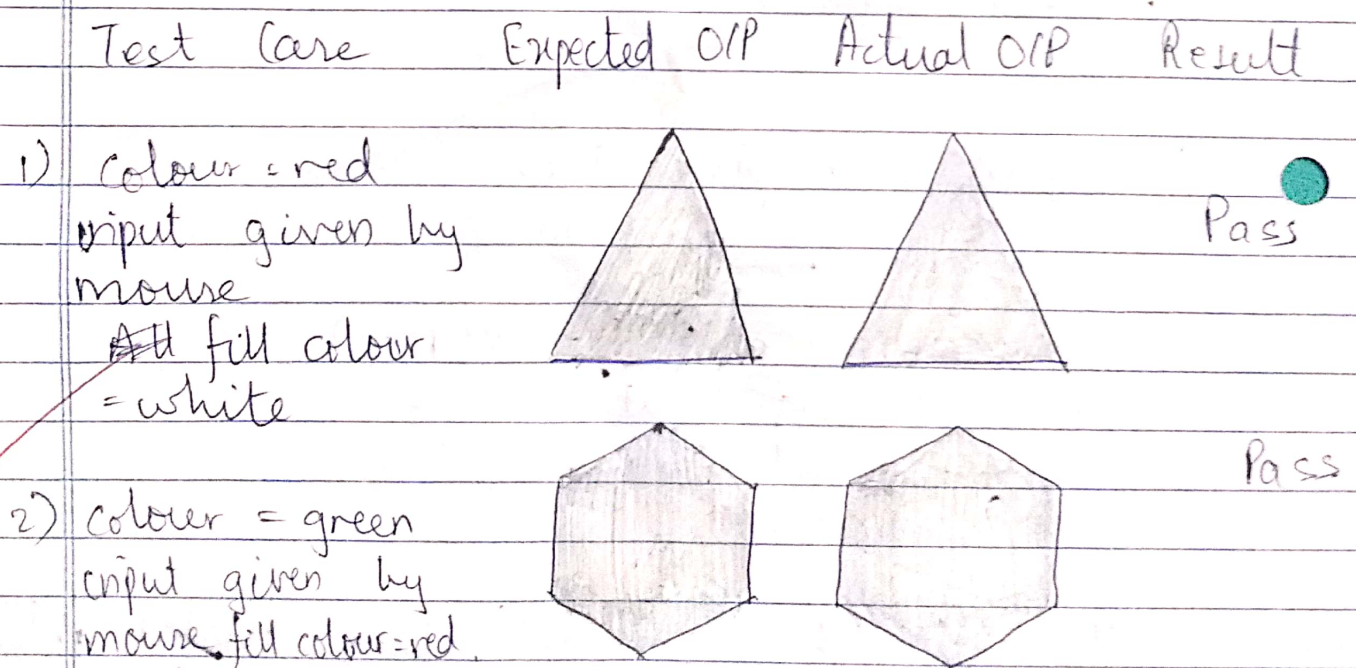 Test Case Expected O/P Actual O/P Result
1) colour = red
input given by Pass
mouse
fill colour
= white
Pass
2) colour = green
input given by
mouse. fill colour = red.